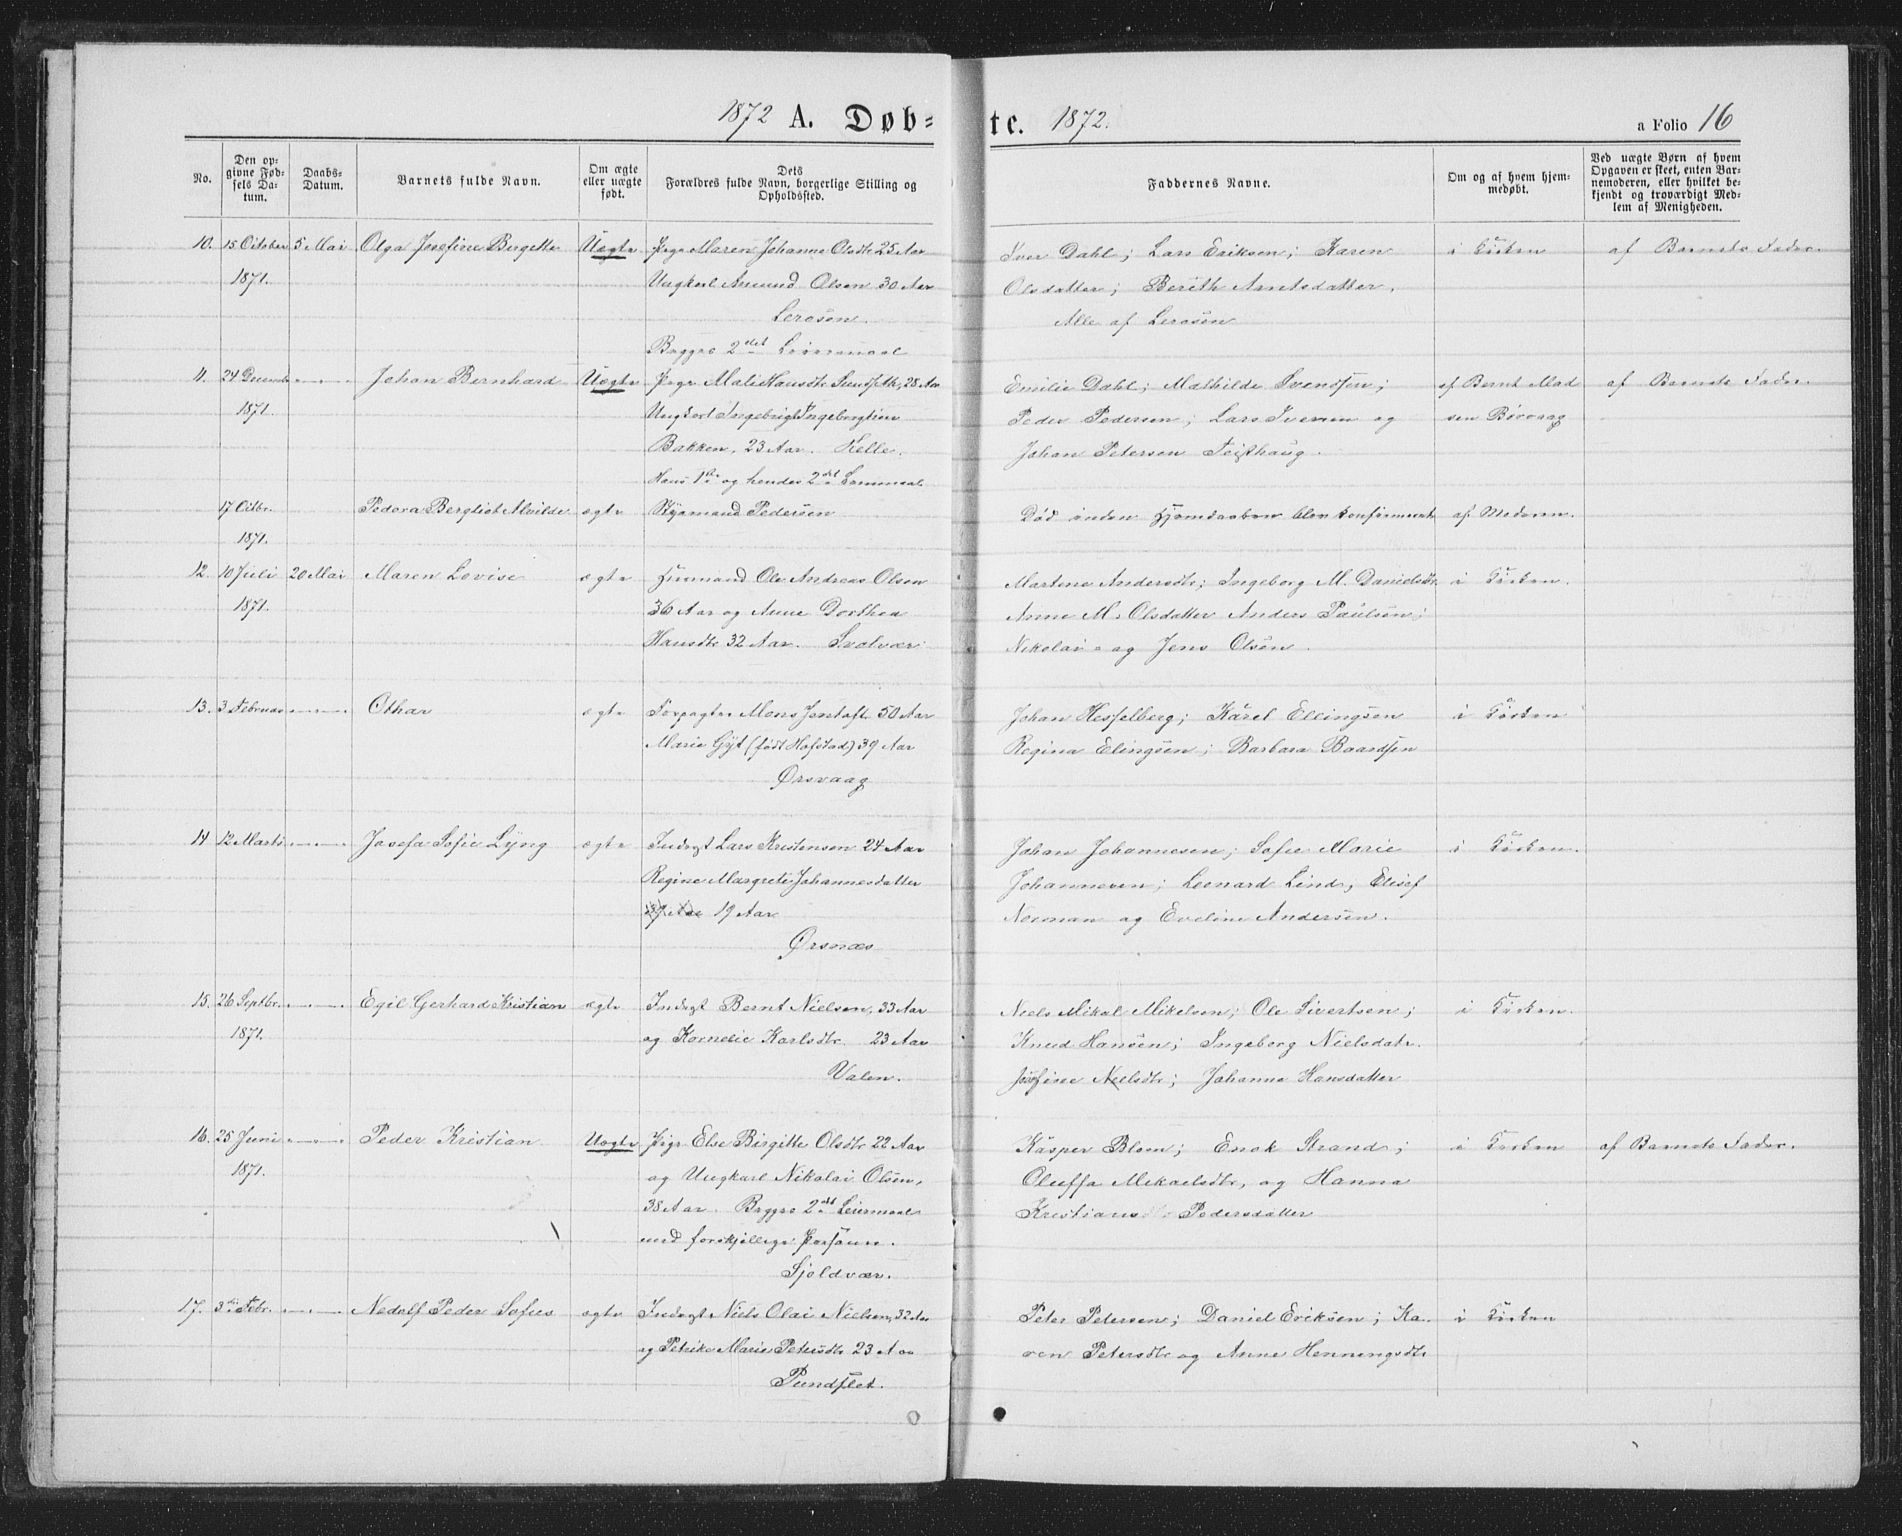 1872 A. Døb= te. 1872. a Folio 16
No.
Den op-
givne Fød-
sels Da-
tum.
Daabs-
Datum.
Barnets fulde Navn.
Om ægte
eller uægte
født.
Dets
Forældres fulde Navn, borgerlige Stilling og
Opholdssted.
Faddernes Navne.
Om og af hvem hjem-
medøbt.
Ved uægte Børn af hvem
Opgaven er skeet, enten Bar-
nemoderen, eller hvilket be-
kjendt og troværdigt Med-
lem af Menigheden.
10. 15 October 5 Mai Olga Josefine Bergette Uægte Pige Maren Johanne Olsdtr 25 Aar Iver Dahl; Lars Eriksen; Karen i Kirken af Barnets Fader.
1871. Ungkarl Amund Olsen 30 Aar Olsdatter; Berith Arntsdatter.
Lerosen. Alle af Lerosen
Begges 2det Leiermaal
11. 24 Decembr Johan Bernhard Uægte Pige Mali Hansdtr Sundsflk, 28 Aar Emilie Dahl; Mathilde Svendsen; af Bernt Mad af Barnets Fader.
1871. Ungkarl Ingebrigt Ingebrigtsen Peder Pedersen; Lars Iversen og sen Børvaag
Bakken, 23 Aar. Helle. Johan Petersen Teisthaug.
Hans 1ste og hendes 2det Lermaal
17 Octbr. Pedora Bergliot Alvilde ægte Styrmand Pedersen Død inden Hjemdaaben blev konfirmeret af Moderen.
1871.
12. 10 Juli 20 Mai Maren Lovise ægte Huusmand Ole Andreas Olsen Martene Andersdtr; Ingeborg M. Danielsdtr i Kirken.
1871. 36 Aar og Anne Dorthea Anne M. Olsdatter Anders Paulsen;
Hansdtr 32 Aar. Svolvær Nikolai - og Jens Olsen.
13. 3 Februar Othar ægte Forpagter Mons Jentoft 50 Aar Johan Hesselberg; Karel Ellingsen i Kirken
Marie Gjt (født Hofstad) 39 Aar Regina Elingsen; Barbara Baardsen
Ørsvaag
14 12 Marts Josefa Sofie Lyng ægte Inderst Lars Kristensen 24 Aar Johan Johannesen; Sofie Marie i Kirken.
Regine Margrete Johannesdatter Johannesen; Leonard Lind, Elisef
19 Aar Norman og Eveline Andersen.
Ørsnæs
15. 26 Septbr. Egil Gerhard Kristian ægte Inderst Bernt Nielsen, 33 Aar Niels Mikal Mikelsen; Ole Sivertsen; i Kirken.
1871. og Kornelie Karlsdtr 23 Aar Knud Hansen; Ingeborg Nielsdatr.
Valen. Josefine Nielsdtr; Johanna Hansdatter
16. 25 Juni Peder Kristian Uægte Pige Else Birgitte Olsdtr 22 Aar Kasper Blom; Enok Strand; i Kirken af Barnets Fader.
1871. og Ungkarl Nikolai Olsen, Oluffa Mikaelsdtr, og Hanna
38 Aar. Begges 2det Leiermaal Kristians Pedersdatter
med forskjellige Personer.
Skjoldvær.
17. 3die Febr. Nedolf Peder Sofus ægte Inderst Niels Olai Nielsen, 32 Aar Peter Petersen; Daniel Eriksen; Ka- i Kirken
og Petrike Marie Petersdtr 23 Aar ren Petersdtr og Anne Henningsdtr
Pundslet.